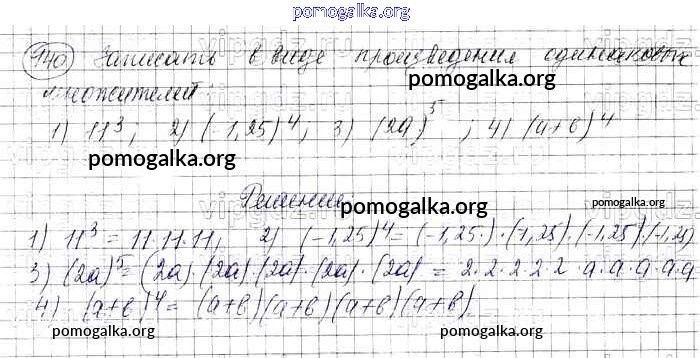 pomogalka.org
140 Записать в виде произведения одинаковых
множителей
pomogalka.org
1) 11³; 2) (-1,25)⁴; 3) (2a)⁵; 4) (a+b)⁴
pomogalka.org
Решение:
pomogalka.org
pomogalka.org
1) 11³ = 11·11·11; 2) (-1,25)⁴ = (-1,25)·(-1,25)·(-1,25)·(-1,25)
3) (2a)⁵ = (2a)·(2a)·(2a)·(2a)·(2a) = 2·2·2·2·2·a·a·a·a·a
4) (a+b)⁴ = (a+b)(a+b)(a+b)(a+b)
pomogalka.org
pomogalka.org